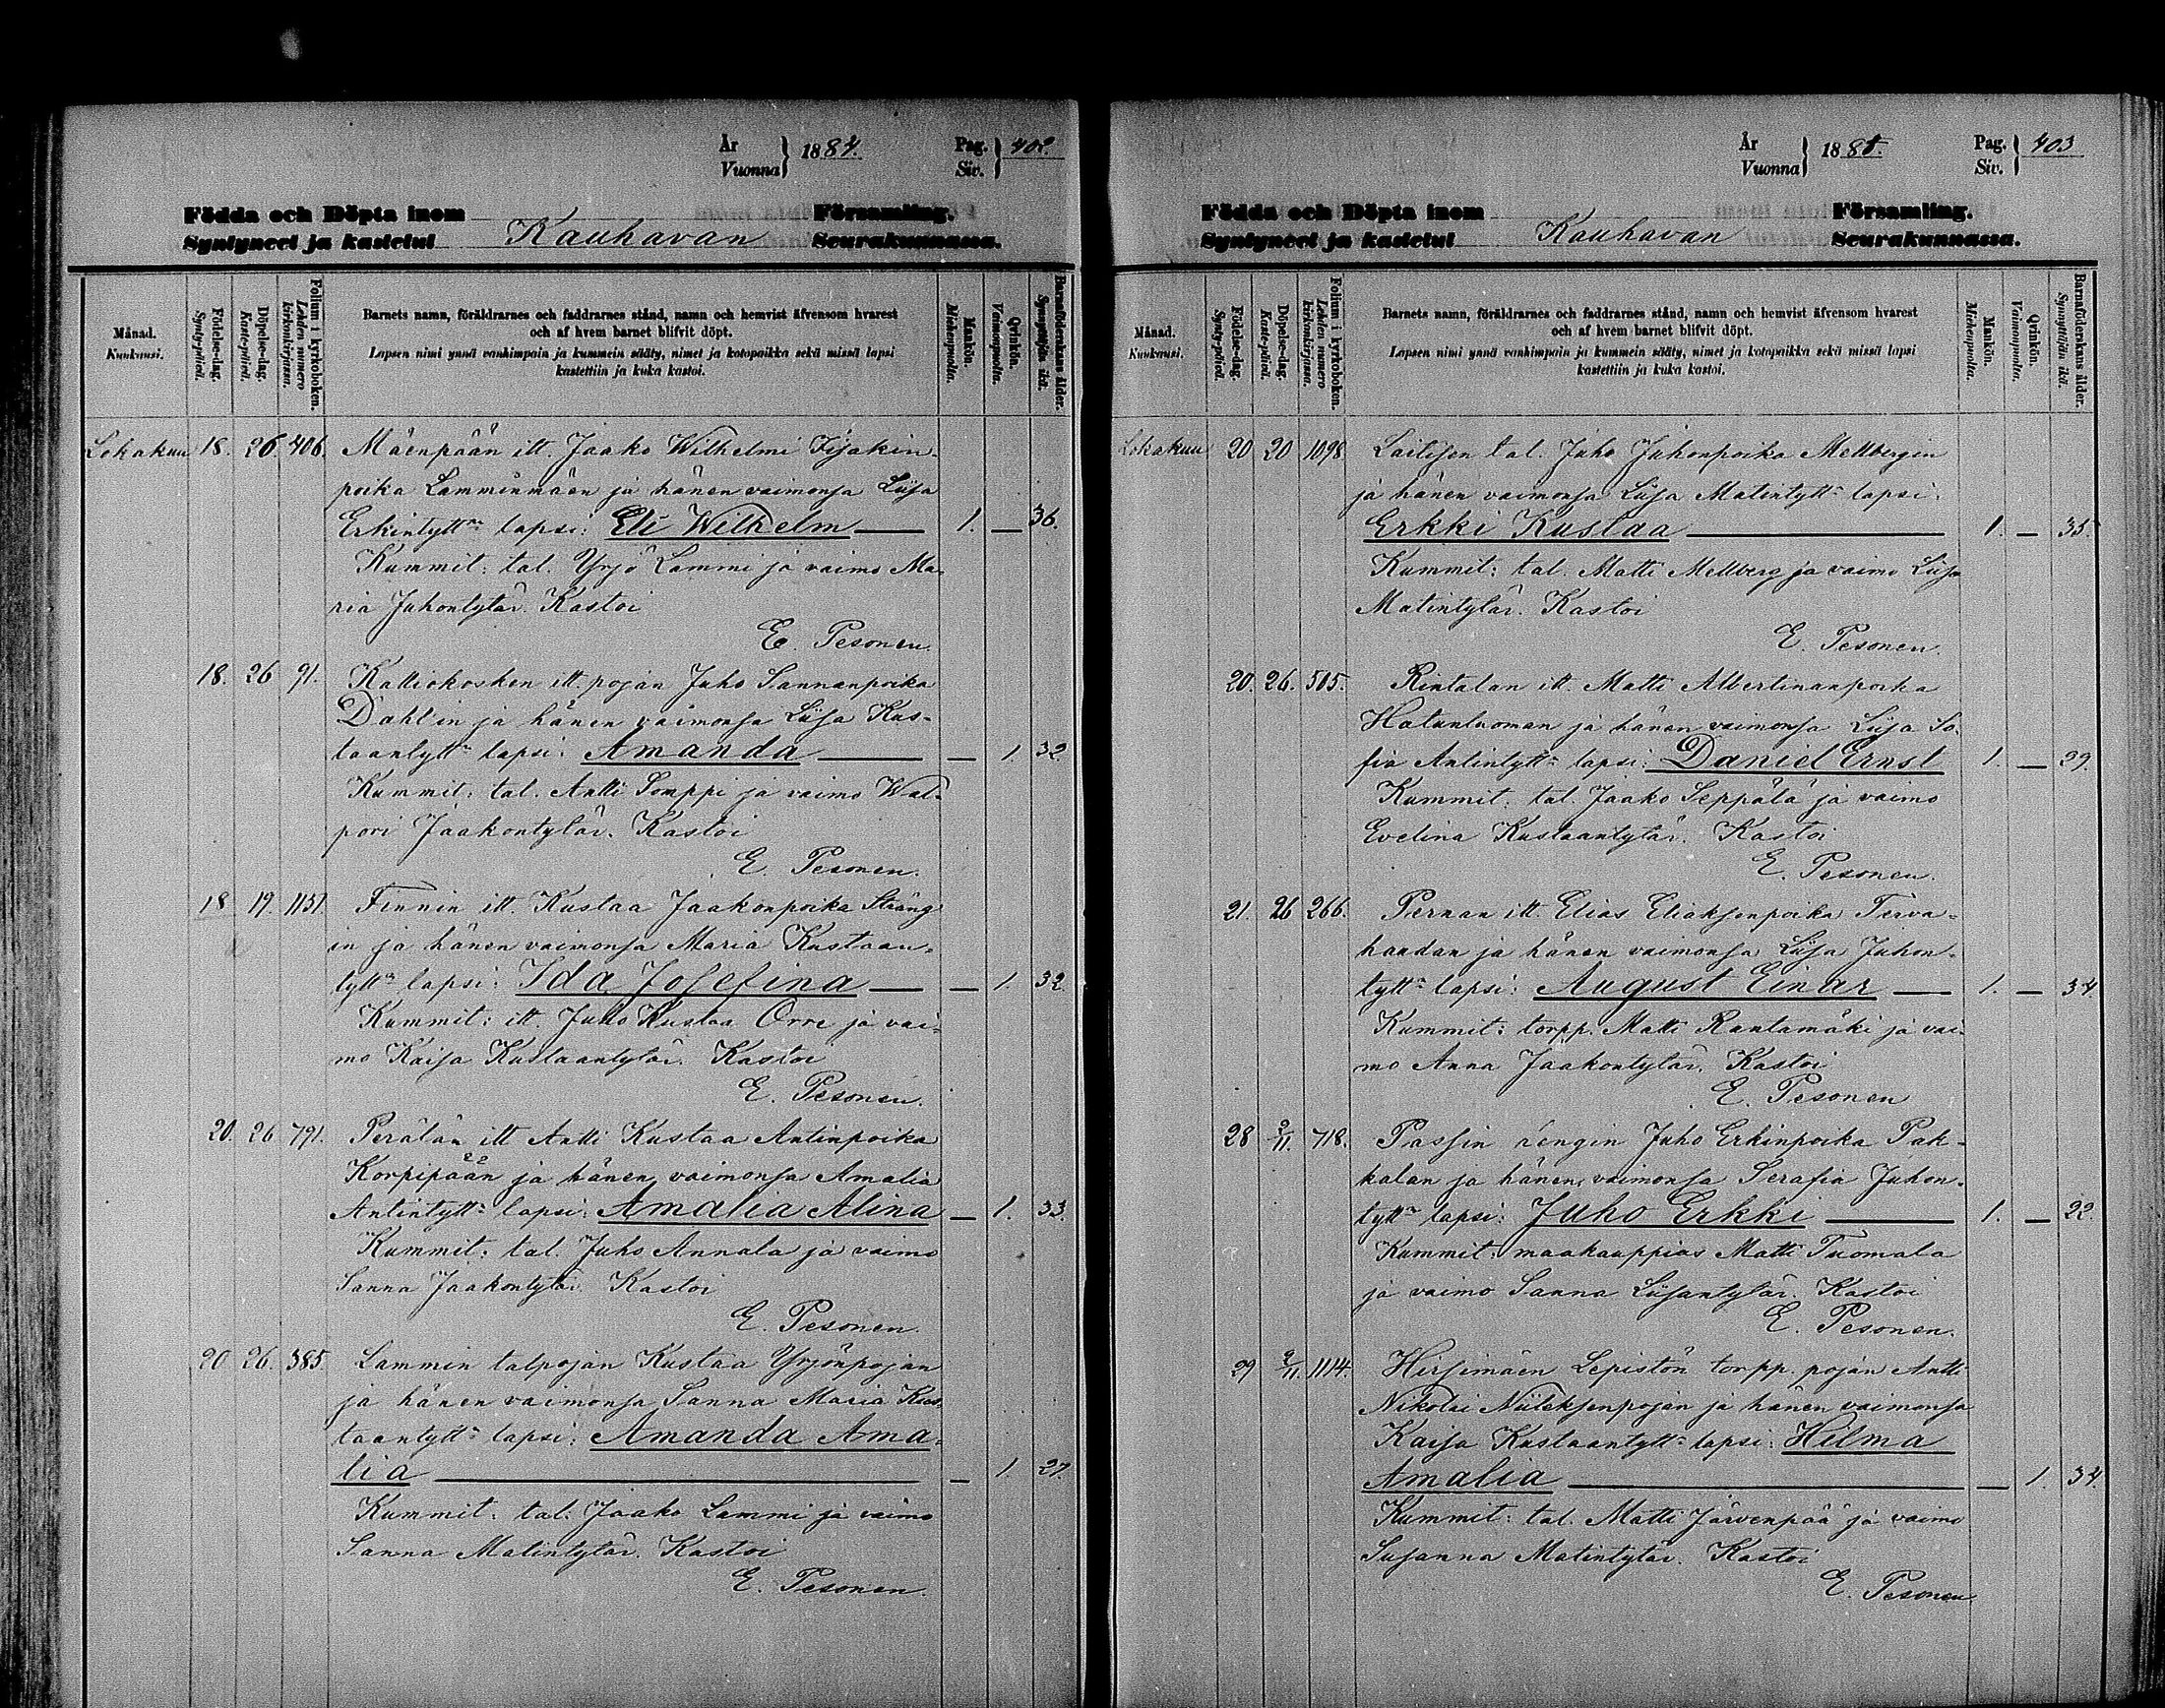 År
Vuonna } 1884.
Pag.
Siv. } 402
Födda och Döpta inom Församling.
Syntyneet ja kastetut Kauhavan Seurakunnassa.
Månad.
Kuukausi.
Födelse-dag.
Synty-päivä.
Döpelse-dag.
Kaste-päivä.
Folium i kyrkoboken.
Lehden numero kirkonkirjassa.
Barnets namn, föräldrarnes och faddrarnes stånd, namn och hemvist äfvensom hvarest
och af hvem barnet blifvit döpt.
Lapsen nimi ynnä vanhimpain ja kummein sääty, nimet ja kotopaikka sekä missä lapsi
kastettiin ja kuka kastoi.
Mankön.
Miehenpuolta.
Qvinkön.
Vaimonpuolta.
Barnaföderskans ålder.
Synnyttäjän ikä.
Lokakuu 18. 26 406. Mäenpään itt. Jaako Wilhelmi Iisakin-
poika Lamminmäen ja hänen vaimonsa Liisa
Erkintytt:n lapsi: Eli Wilhelm — 1. — 36.
Kummit: tal. Yrjö Lammi ja vaimo Ma-
ria Juhontytär. Kastoi
E. Pesonen.
18. 26 91. Kalliokosken itt. pojan Juho Sannanpoika
Dahl'in ja hänen vaimonsa Liisa Kus-
taantytt:n lapsi: Amanda — — 1. 32.
Kummit: tal. Antti Somppi ja vaimo Wal-
pori Jaakontytär. Kastoi
E. Pesonen.
18 19. 1151. Finnin itt. Kustaa Jaakonpoika Sträng
in ja hänen vaimonsa Maria Kustaan-
tytt:n lapsi: Ida Josefina — — 1. 32.
Kummit: itt. Juho Kustaa Orre ja vai-
mo Kaisa Kustaantytär. Kastoi
E. Pesonen.
20. 26 791. Perälän itt Antti Kustaa Antinpoika
Korpipään ja hänen vaimonsa Amalia
Antintytt:n lapsi: Amalia Alina — 1. 33.
Kummit: tal. Juho Annala ja vaimo
Sanna Jaakontytär. Kastoi
E. Pesonen.
20 26. 385. Lammin talpojan Kustaa Yrjönpojan
ja hänen vaimonsa Sanna Maria Kus-
taantytt:n lapsi: Amanda Ama-
lia — — 1. 27.
Kummit: tal. Jaako Lammi ja vaimo
Sanna Matintytär. Kastoi
E. Pesonen.
År
Vuonna } 188
Pag.
Siv. } 403
Födda och Döpta inom Församling.
Syntyneet ja kastetut Kauhavan Seurakunnassa.
Månad.
Kuukausi.
Födelse-dag.
Synty-päivä.
Döpelse-dag.
Kaste-päivä.
Folium i kyrkoboken.
Lehden numero kirkonkirjassa.
Barnets namn, föräldrarnes och faddrarnes stånd, namn och hemvist äfvensom hvarest
och af hvem barnet blifvit döpt.
Lapsen nimi ynnä vanhimpain ja kummein sääty, nimet ja kotopaikka sekä missä lapsi
kastettiin ja kuka kastoi.
Mankön.
Miehenpuolta.
Qvinkön.
Vaimonpuolta.
Barnaföderskans ålder.
Synnyttäjän ikä.
Lokakuu 20 20 1098 Laitisen tal. Juho Juhonpoika Mellbergin
ja hänen vaimonsa Liisa Matintytt:n lapsi:
Erkki Kustaa — 1. — 35.
Kummit: tal. Matti Mellberg ja vaimo Liisa
Matintytär. Kastoi
E. Pesonen.
20. 26. 505. Rintalan itt. Matti Albertinanpoika
Hatunluoman ja hänen vaimonsa Liisa So-
fia Antintytt:n lapsi: Daniel Ernst 1. — 29.
Kummit: tal. Jaako Seppälä ja vaimo
Evelina Kustaantytär. Kastoi
E. Pesonen.
21. 26 266. Pernan itt. Elias Eliaksenpoika Terva-
haudan ja hänen vaimonsa Liisa Juhon-
tytt:n lapsi: August Einar — 1. — 34.
Kummit: torpp. Matti Rantamäki ja vai-
mo Anna Jaakontytär. Kastoi
E. Pesonen
28 2/11. 718. Passin rengin Juho Erkinpoika Pak-
kalan ja hänen vaimonsa Serafia Juhon-
tytt:n lapsi: Juho Erkki — 1. — 22.
Kummit: maakauppias Matti Tuomala
ja vaimo Sanna Liisantytär. Kastoi
E. Pesonen.
29 2/11. 1114. Hirsimäen Lepistön torpp. pojan Antti
Nikolai Niileksenpojan ja hänen vaimonsa
Kaisa Kustaantytt:n lapsi: Hilma
Amalia — — 1. 34.
Kummit: tal. Matti Järvenpää ja vaimo
Susanna Matintytär. Kastoi
E. Pesonen